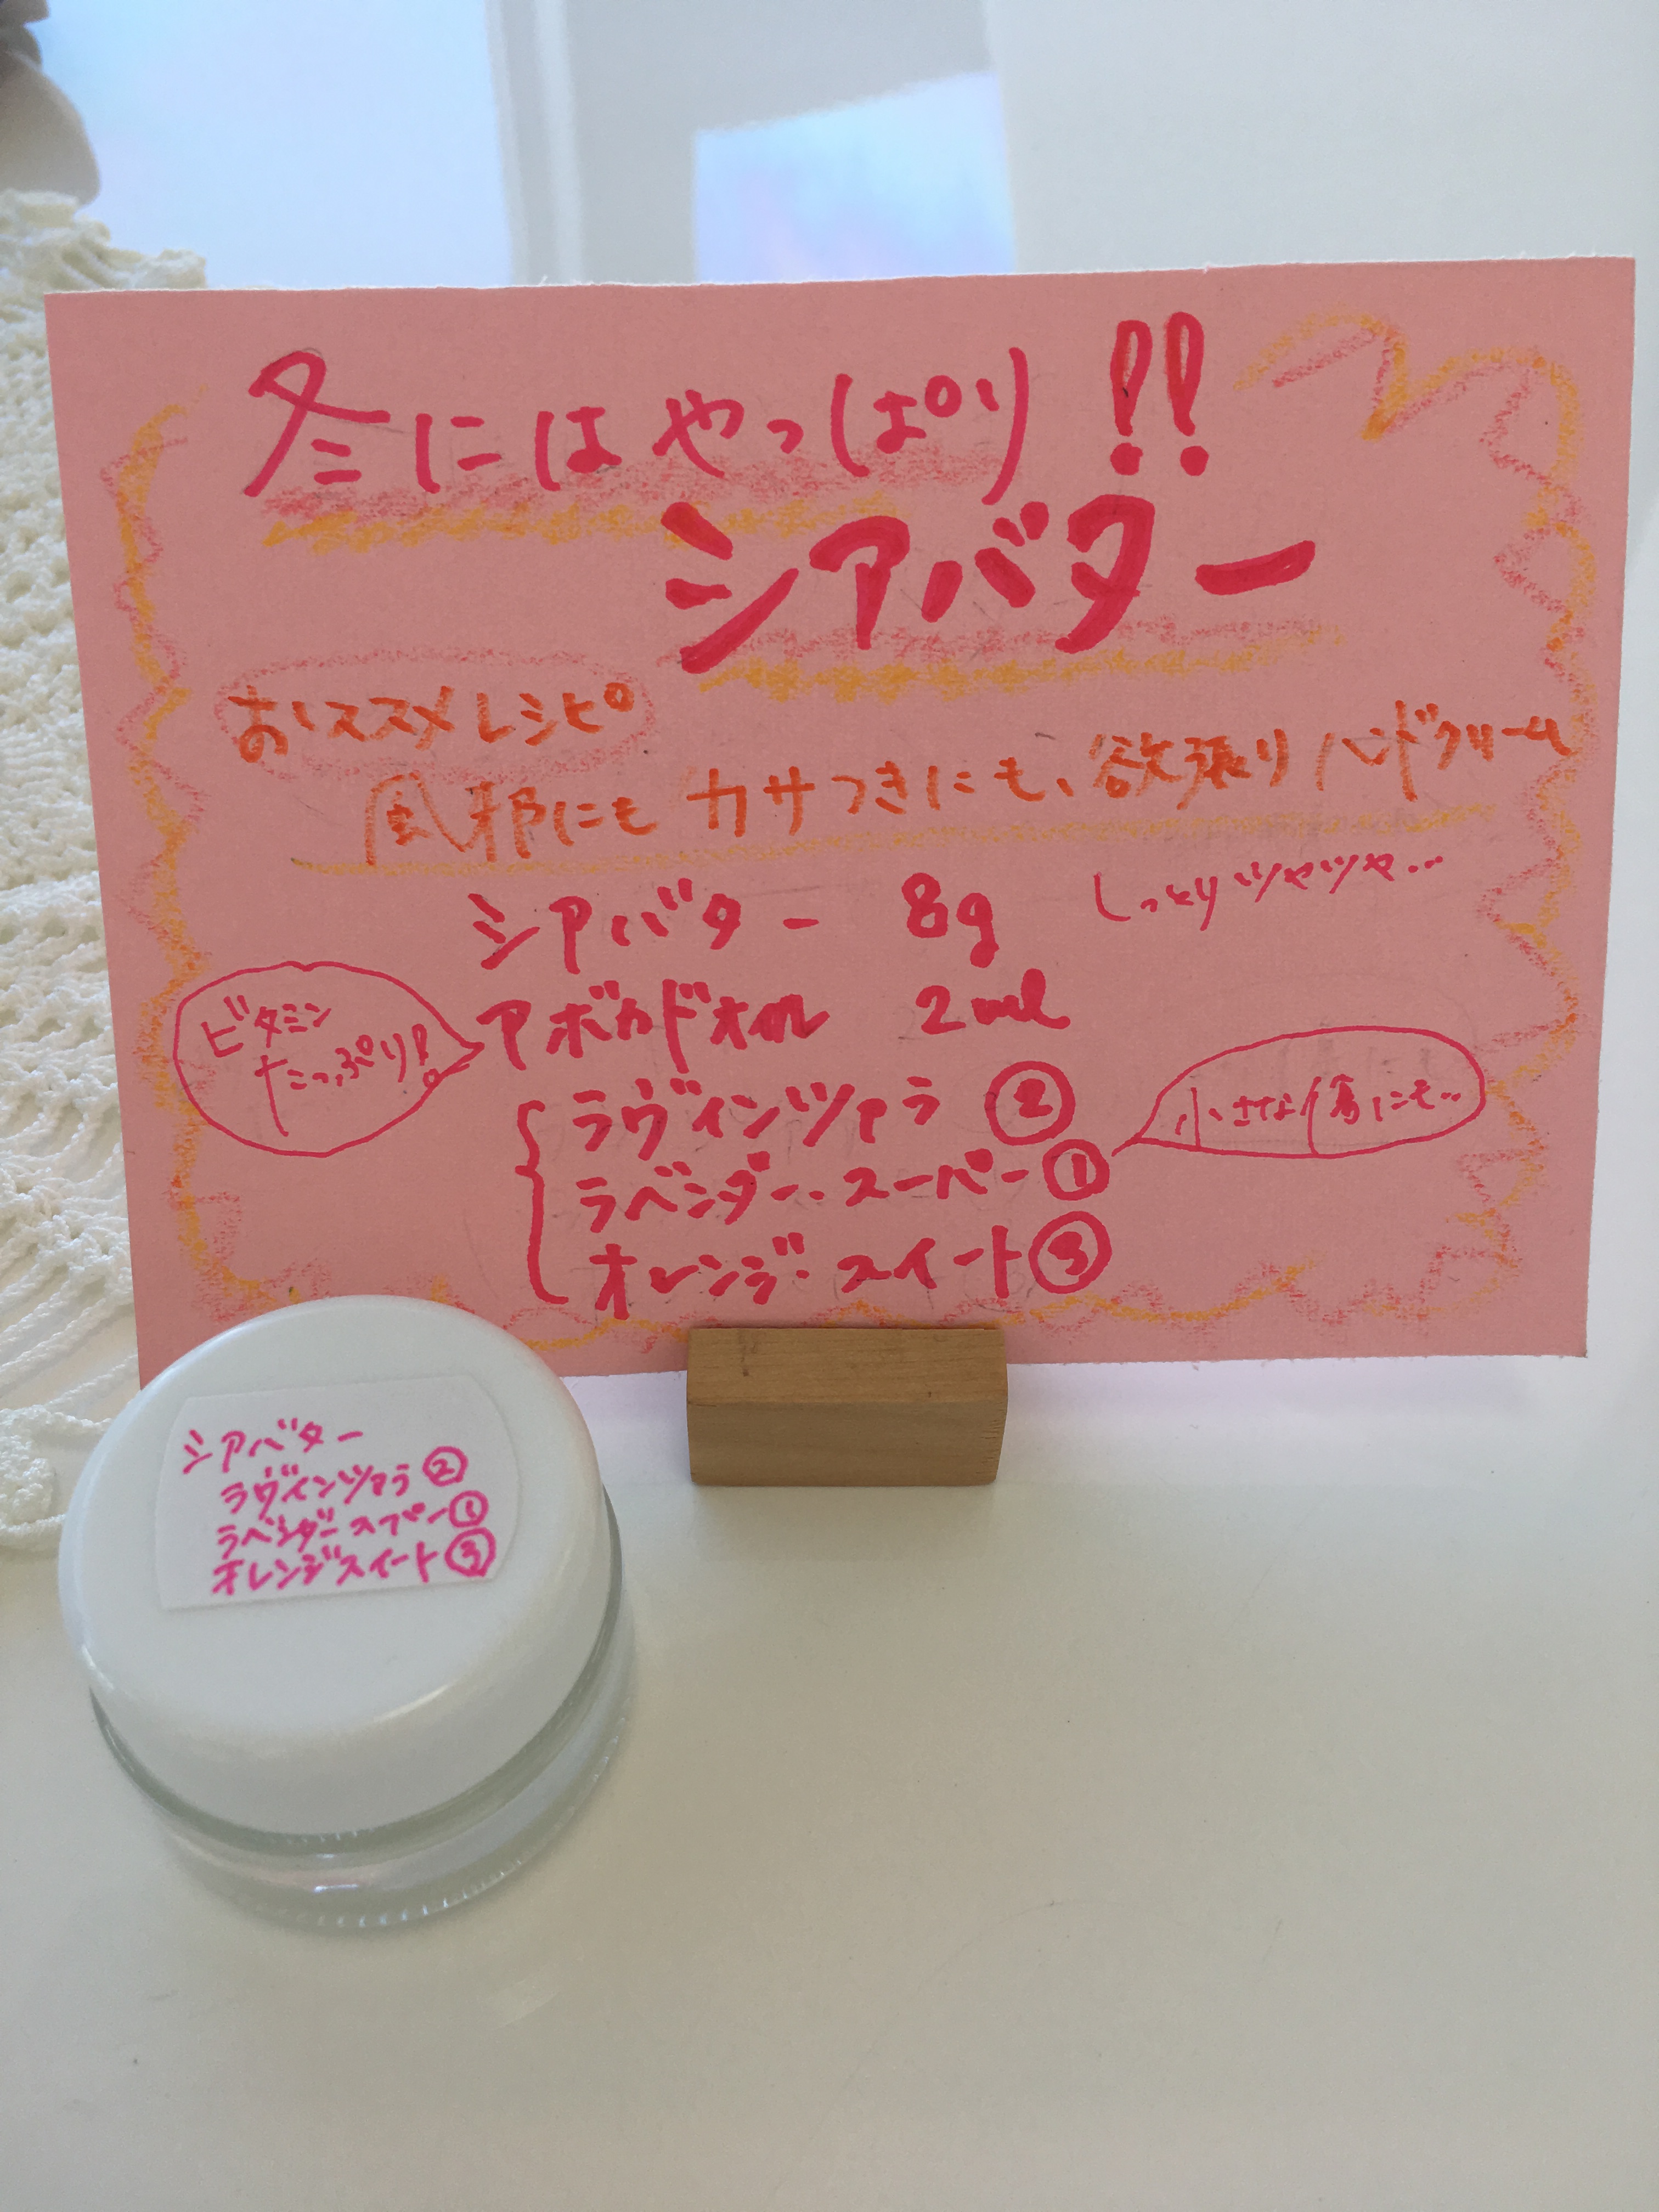 冬にはやっぱり!!
シアバター
おススメレシピ
風邪にもカサつきにも、欲張りハンドクリーム
シアバター 8g しっとりツヤツヤ…
アボカドオイル 2ml
ビタミン
たっぷり!
ラヴィンツァラ ②
ラベンダー・スーパー ①
小さな傷にも…
オレンジ・スイート ③
シアバター
ラヴィンツァラ ②
ラベンダースーパー ①
オレンジスイート ③